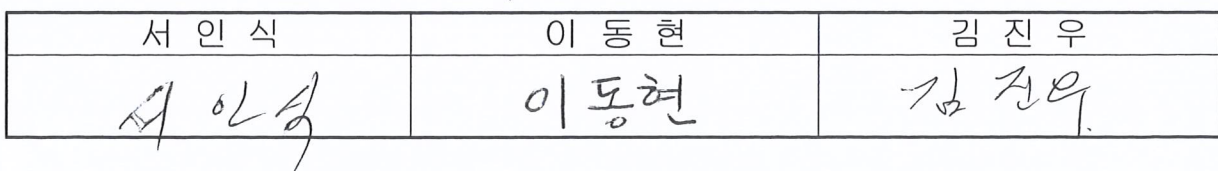 서 인 식 이 동 현 김 진 우
서 인 식 이동현 김 진우